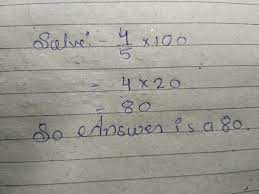 Solve: 4/5 × 100
= 4 × 20
= 80
So Answer is a 80.